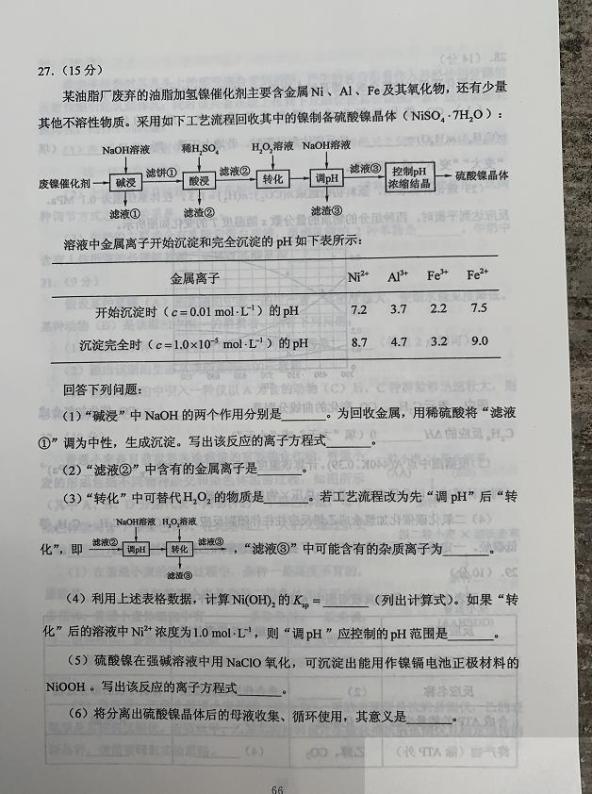 27.（15分）
某油脂厂废弃的油脂加氢镍催化剂主要含金属Ni、Al、Fe及其氧化物，还有少量
其他不溶性物质。采用如下工艺流程回收其中的镍制备硫酸镍晶体（NiSO₄·7H₂O）：
NaOH溶液 稀H₂SO₄ H₂O₂溶液 NaOH溶液
废镍催化剂 碱浸 滤饼① 酸浸 滤液② 转化 调pH 滤液③ 控制pH 浓缩结晶 硫酸镍晶体
滤液① 滤渣② 滤渣③
溶液中金属离子开始沉淀和完全沉淀的 pH 如下表所示：
金属离子 Ni²⁺ Al³⁺ Fe³⁺ Fe²⁺
开始沉淀时（c=0.01 mol·L⁻¹）的pH 7.2 3.7 2.2 7.5
沉淀完全时（c=1.0×10⁻⁵ mol·L⁻¹）的pH 8.7 4.7 3.2 9.0
回答下列问题：
（1）“碱浸”中 NaOH 的两个作用分别是______。为回收金属，用稀硫酸将“滤液
①”调为中性，生成沉淀。写出该反应的离子方程式______。
（2）“滤液②”中含有的金属离子是______。
（3）“转化”中可替代H₂O₂的物质是______。若工艺流程改为先“调pH”后“转
NaOH溶液 H₂O₂溶液
化”，即 滤液② 调pH 转化 滤液③ ，“滤液③”中可能含有的杂质离子为______。
滤渣③
（4）利用上述表格数据，计算Ni(OH)₂的Kₛₚ=______（列出计算式）。如果“转
化”后的溶液中Ni²⁺浓度为1.0 mol·L⁻¹，则“调pH”应控制的pH范围是______。
（5）硫酸镍在强碱溶液中用NaClO氧化，可沉淀出能用作镍镉电池正极材料的
NiOOH。写出该反应的离子方程式______。
（6）将分离出硫酸镍晶体后的母液收集、循环使用，其意义是______。
66